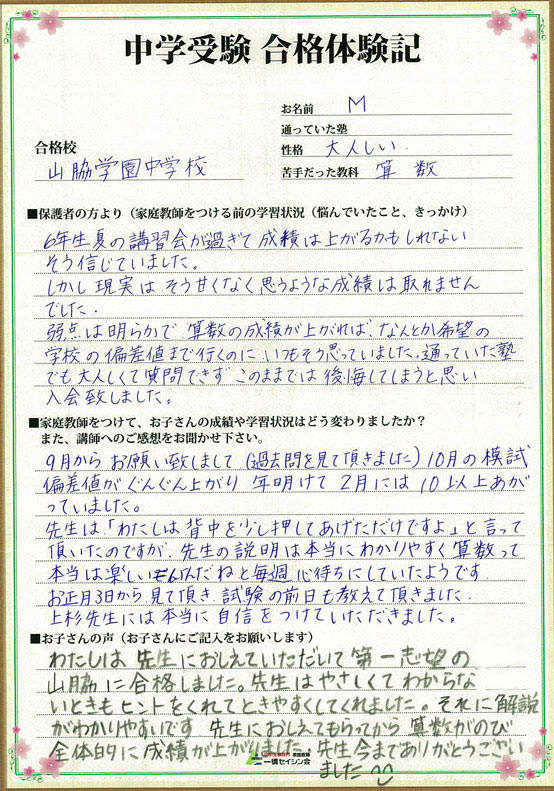 中学受験 合格体験記
お名前 M
通っていた塾
合格校
性格 大人しい.
山脇学園中学校
苦手だった教科 算数
■保護者の方より（家庭教師をつける前の学習状況（悩んでいたこと、きっかけ）
6年生夏の講習会が過ぎて成績は上がるかもしれない
そう信じていました。
しかし現実はそう甘くなく思うような成績は取れません
でした.
弱点は明らかで、算数の成績が上がれば、なんとか希望の
学校の偏差値まで行くのに いつもそう思っていました。通っていた塾
でも大人しくて質問できず このままでは後悔してしまうと思い
入会致しました。
■家庭教師をつけて、お子さんの成績や学習状況はどう変わりましたか？
また、講師へのご感想をお聞かせ下さい。
9月からお願い致しまして（過去問を見て頂きました）10月の模試
偏差値がぐんぐん上がり 年明けて2月には10以上あが
っていました。
先生は「わたしは背中を少し押してあげただけですよ」と言って
頂いたのですが、先生の説明は本当にわかりやすく算数って
本当は楽しいんだねと毎週心待ちにしていたようです.
お正月3日から見て頂き、試験の前日も教えて頂きました.
上杉先生には本当に自信をつけていただきました。
■お子さんの声（お子さんにご記入をお願いします）
わたしは先生におしえていただいて第一志望の
山脇に合格しました。先生はやさしくてわからな
いときもヒントをくれてときやすくしてくれました。それに解説
がわかりやすいです 先生におしえてもらってから算数がのび
全体的に成績が上がりました。先生今までありがとうござい
ました
一橋セイシン会